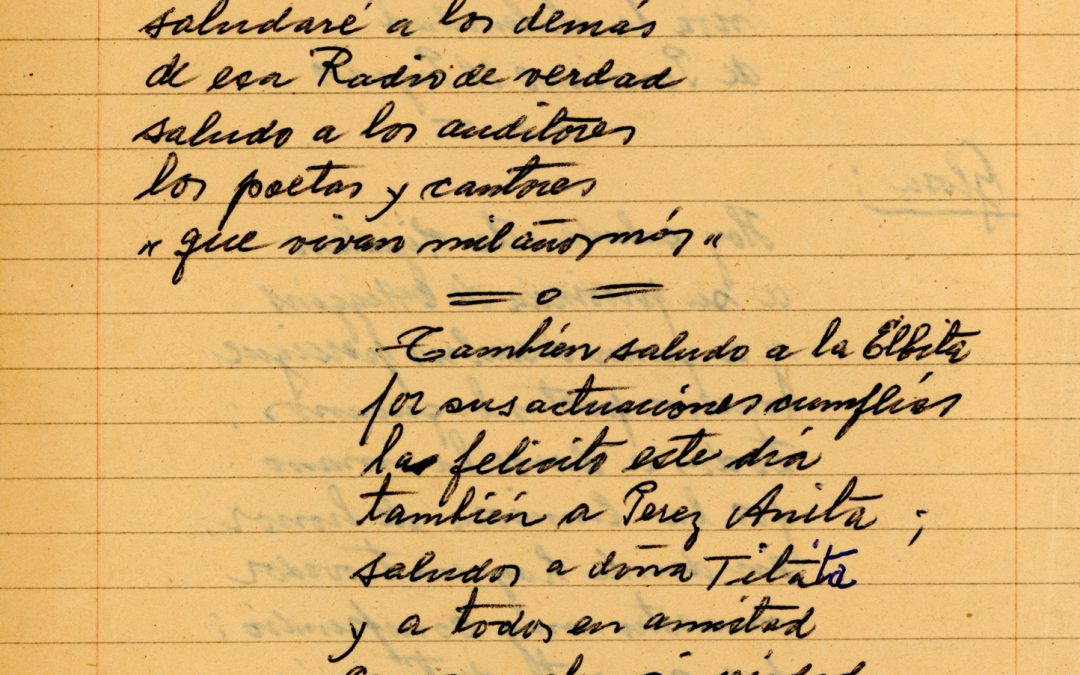 saludaré a los demás
de esa Radio de verdad
saludo a los auditores
los poetas y cantores
"que vivan mil años más"
También saludo a la Elbita
por sus actuaciones cumplías
la felicito este día
también a Perez Anita ;
saludos a doña Titata
y a todos en amistad